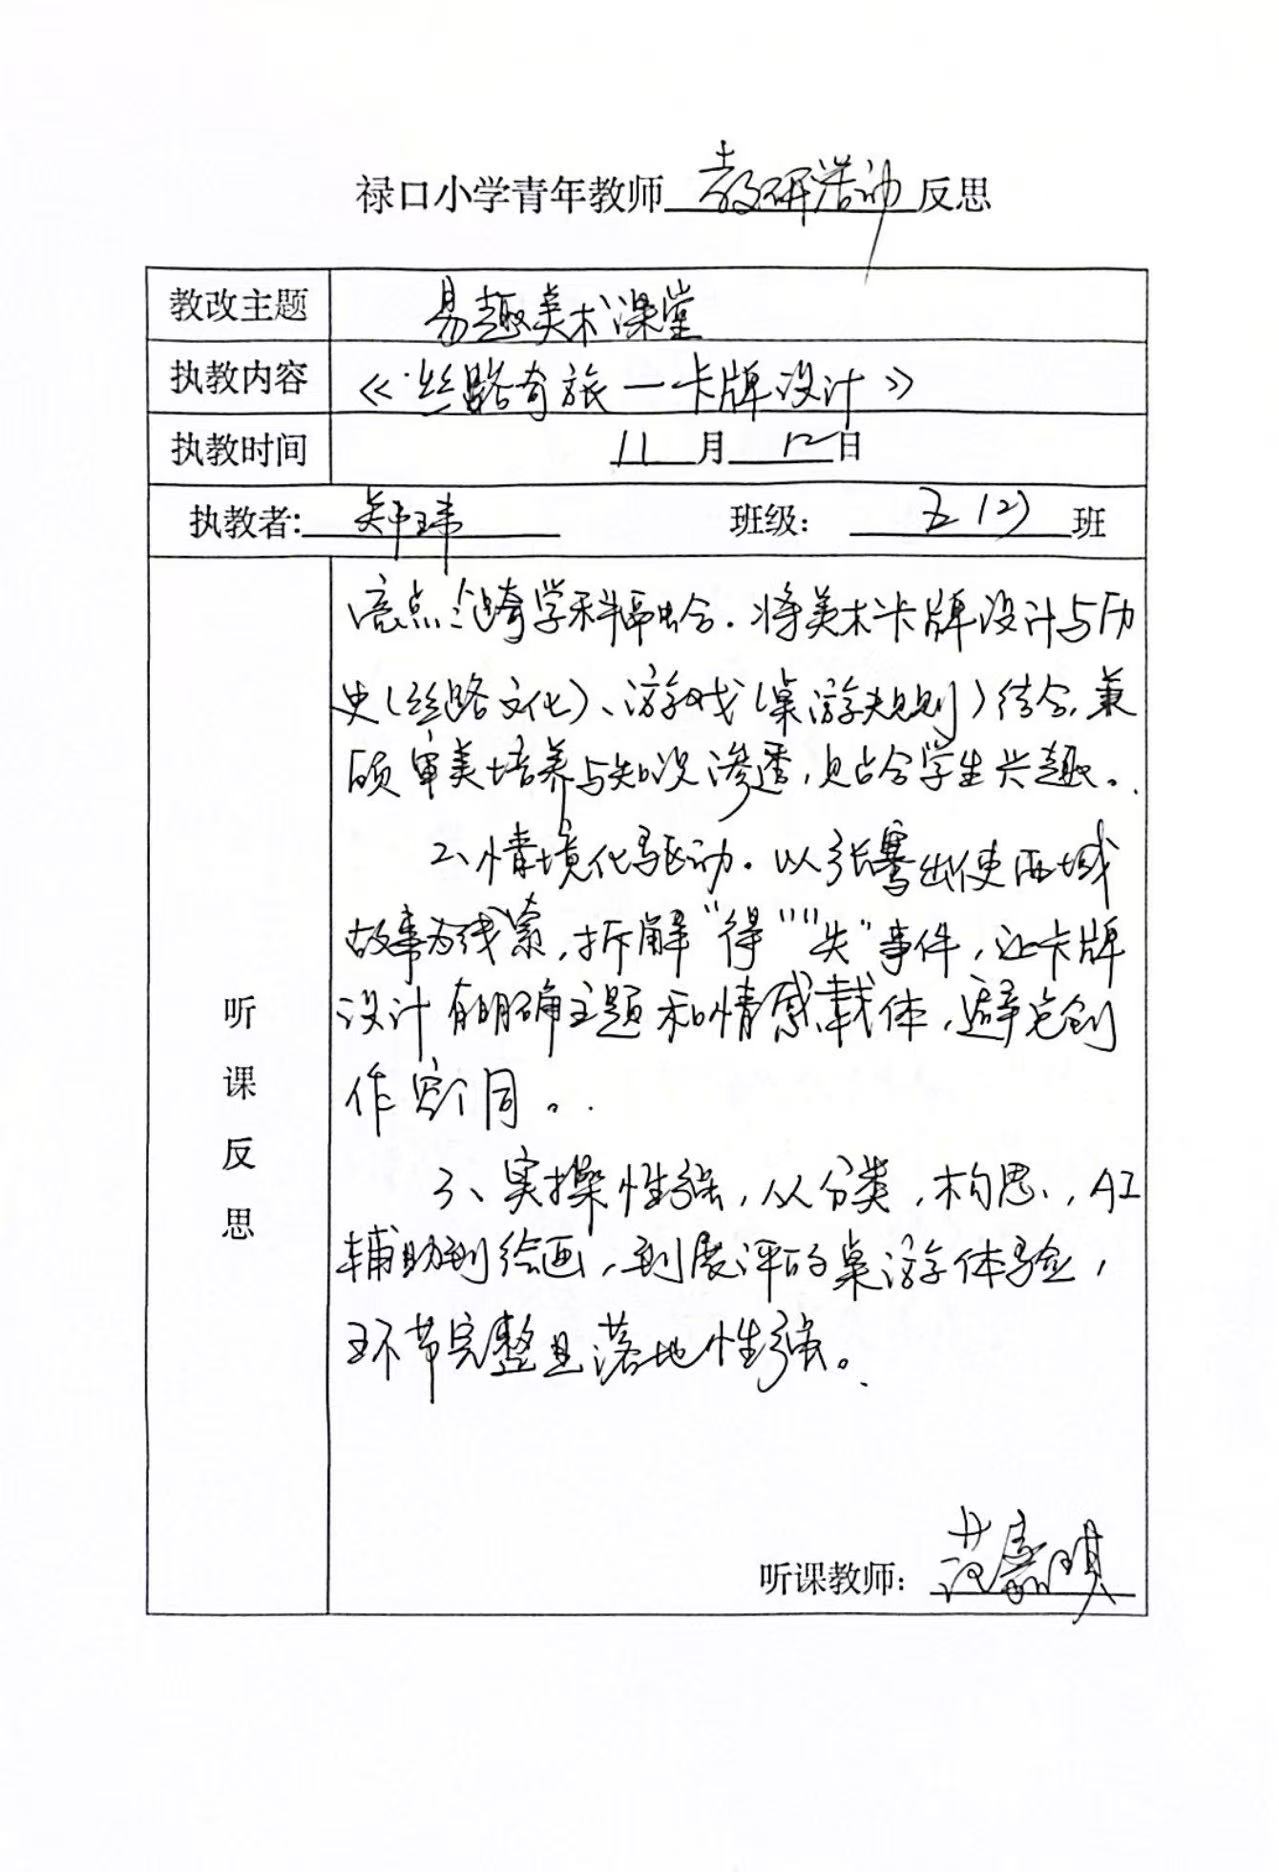 禄口小学青年教师教研活动反思
教改主题 易趣美术课堂
执教内容 《丝路奇旅—卡牌设计》
执教时间 11月12日
执教者: 郑玮 班级: 五(2)班
听课反思
亮点:1、跨学科融合.将美术卡牌设计与历
史(丝路文化)、游戏(桌游规则)结合,兼
顾审美培养与知识渗透,贴合学生兴趣。
2、情境化驱动。以张骞出使西域
故事为线索,拆解“得”“失”事件,让卡牌
设计有明确主题和情感载体,避免创
作空洞。
3、实操性强,从分类,构思,AI
辅助到绘画,到展评的桌游体验,
环节完整且落地性强。
听课教师: 范嘉琪